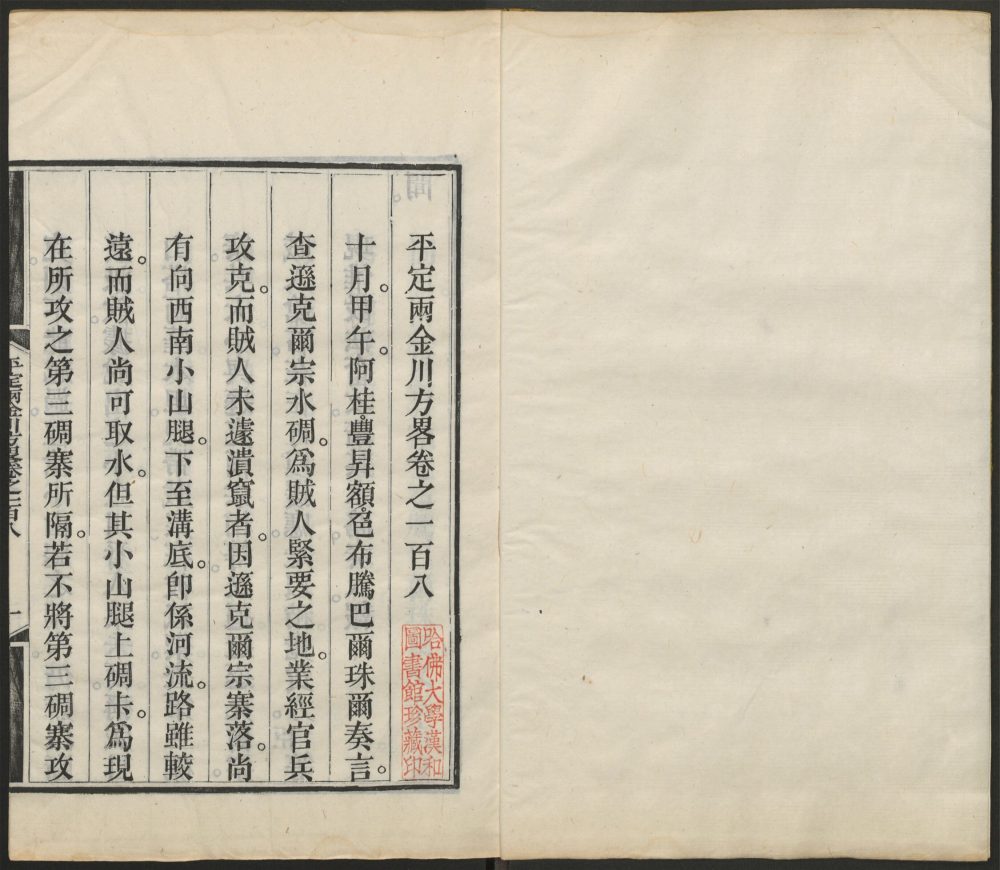 平定兩金川方畧卷之一百八
哈佛大學漢和
圖書館珍藏印
十月。甲午。阿桂。豐昇額。色布騰巴爾珠爾奏言。
查遜克爾宗水碉。爲賊人緊要之地。業經官兵
攻克。而賊人未遽潰竄者。因遜克爾宗寨落。尚
有向西南小山腿。下至溝底。卽係河流。路雖較
遠。而賊人尚可取水。但其小山腿上碉卡。爲現
在所攻之第三碉寨所隔。若不將第三碉寨攻
平定兩金川方畧卷之一百八
一